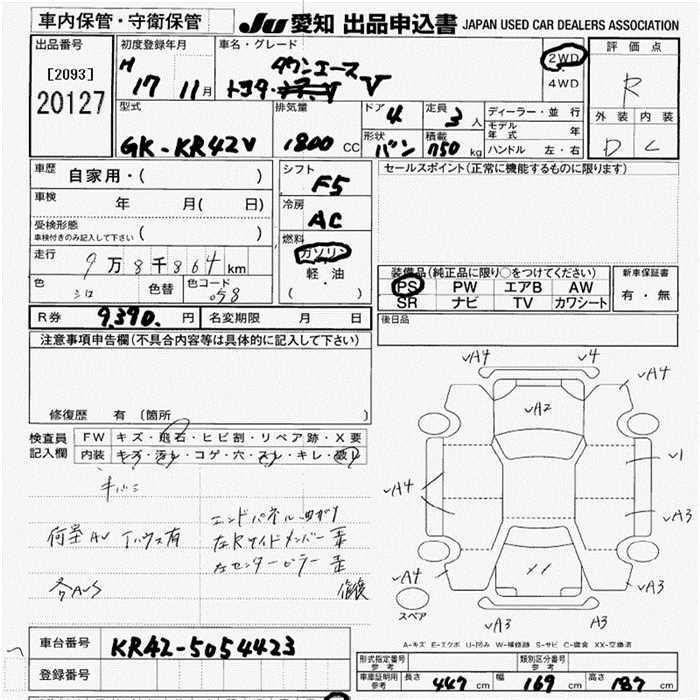 車内保管・守衛保管 JU 愛知 出品申込書 JAPAN USED CAR DEALERS ASSOCIATION
出品番号 初度登録年月 車名・グレード 2WD・4WD 評価点
[2093] H 17 11月 トヨタ・ タウンエース V R
20127
型式 排気量 ドア 4 定員 3 人 ディーラー・並行 外装 内装
GK-KR42V 1800 CC 形状 バン 積載 750 kg モデル年式 年 D C
ハンドル 左・右
車歴 自家用・( ) シフト F5 セールスポイント(正常に機能するものに限ります)
車検 年 月( 日) 冷房 AC
受検形態 車検付きのみ記入して下さい ( )
走行 9万8千864km 燃料 ガソリン 軽・油 ( )
装備品(純正品に限り○をつけてください) 新車保証書
PS PW エアB AW 有・無
SR ナビ TV カワシート
色 シロ 色替 色コード 058
R券 9,390. 円 名変期限 月 日 後日品
注意事項申告欄(不具合内容等は具体的に記入して下さい)
修復歴 有 〔箇所 〕
検査員記入欄 FW キズ・飛石・ヒビ割・リペア跡・X要
内装 キズ・汚レ・コゲ・穴・スレ・キレ・破レ
エンドパネル曲ガリ
荷室 有
左Rサイドメンバー歪
左センターピラー歪
修復
A4 4
A4 A4
A2
1
A4
A3
A4 A3
スペア A3 A3
A-キズ E-エクボ U-凹み W-補修跡 S-サビ C-腐食 XX-交換済
車台番号 KR42-5054423
登録番号
形式指定番号 参考 類別区分番号 参考
車庫証明用 参考 長さ 447 cm 幅 169 cm 高さ 187 cm